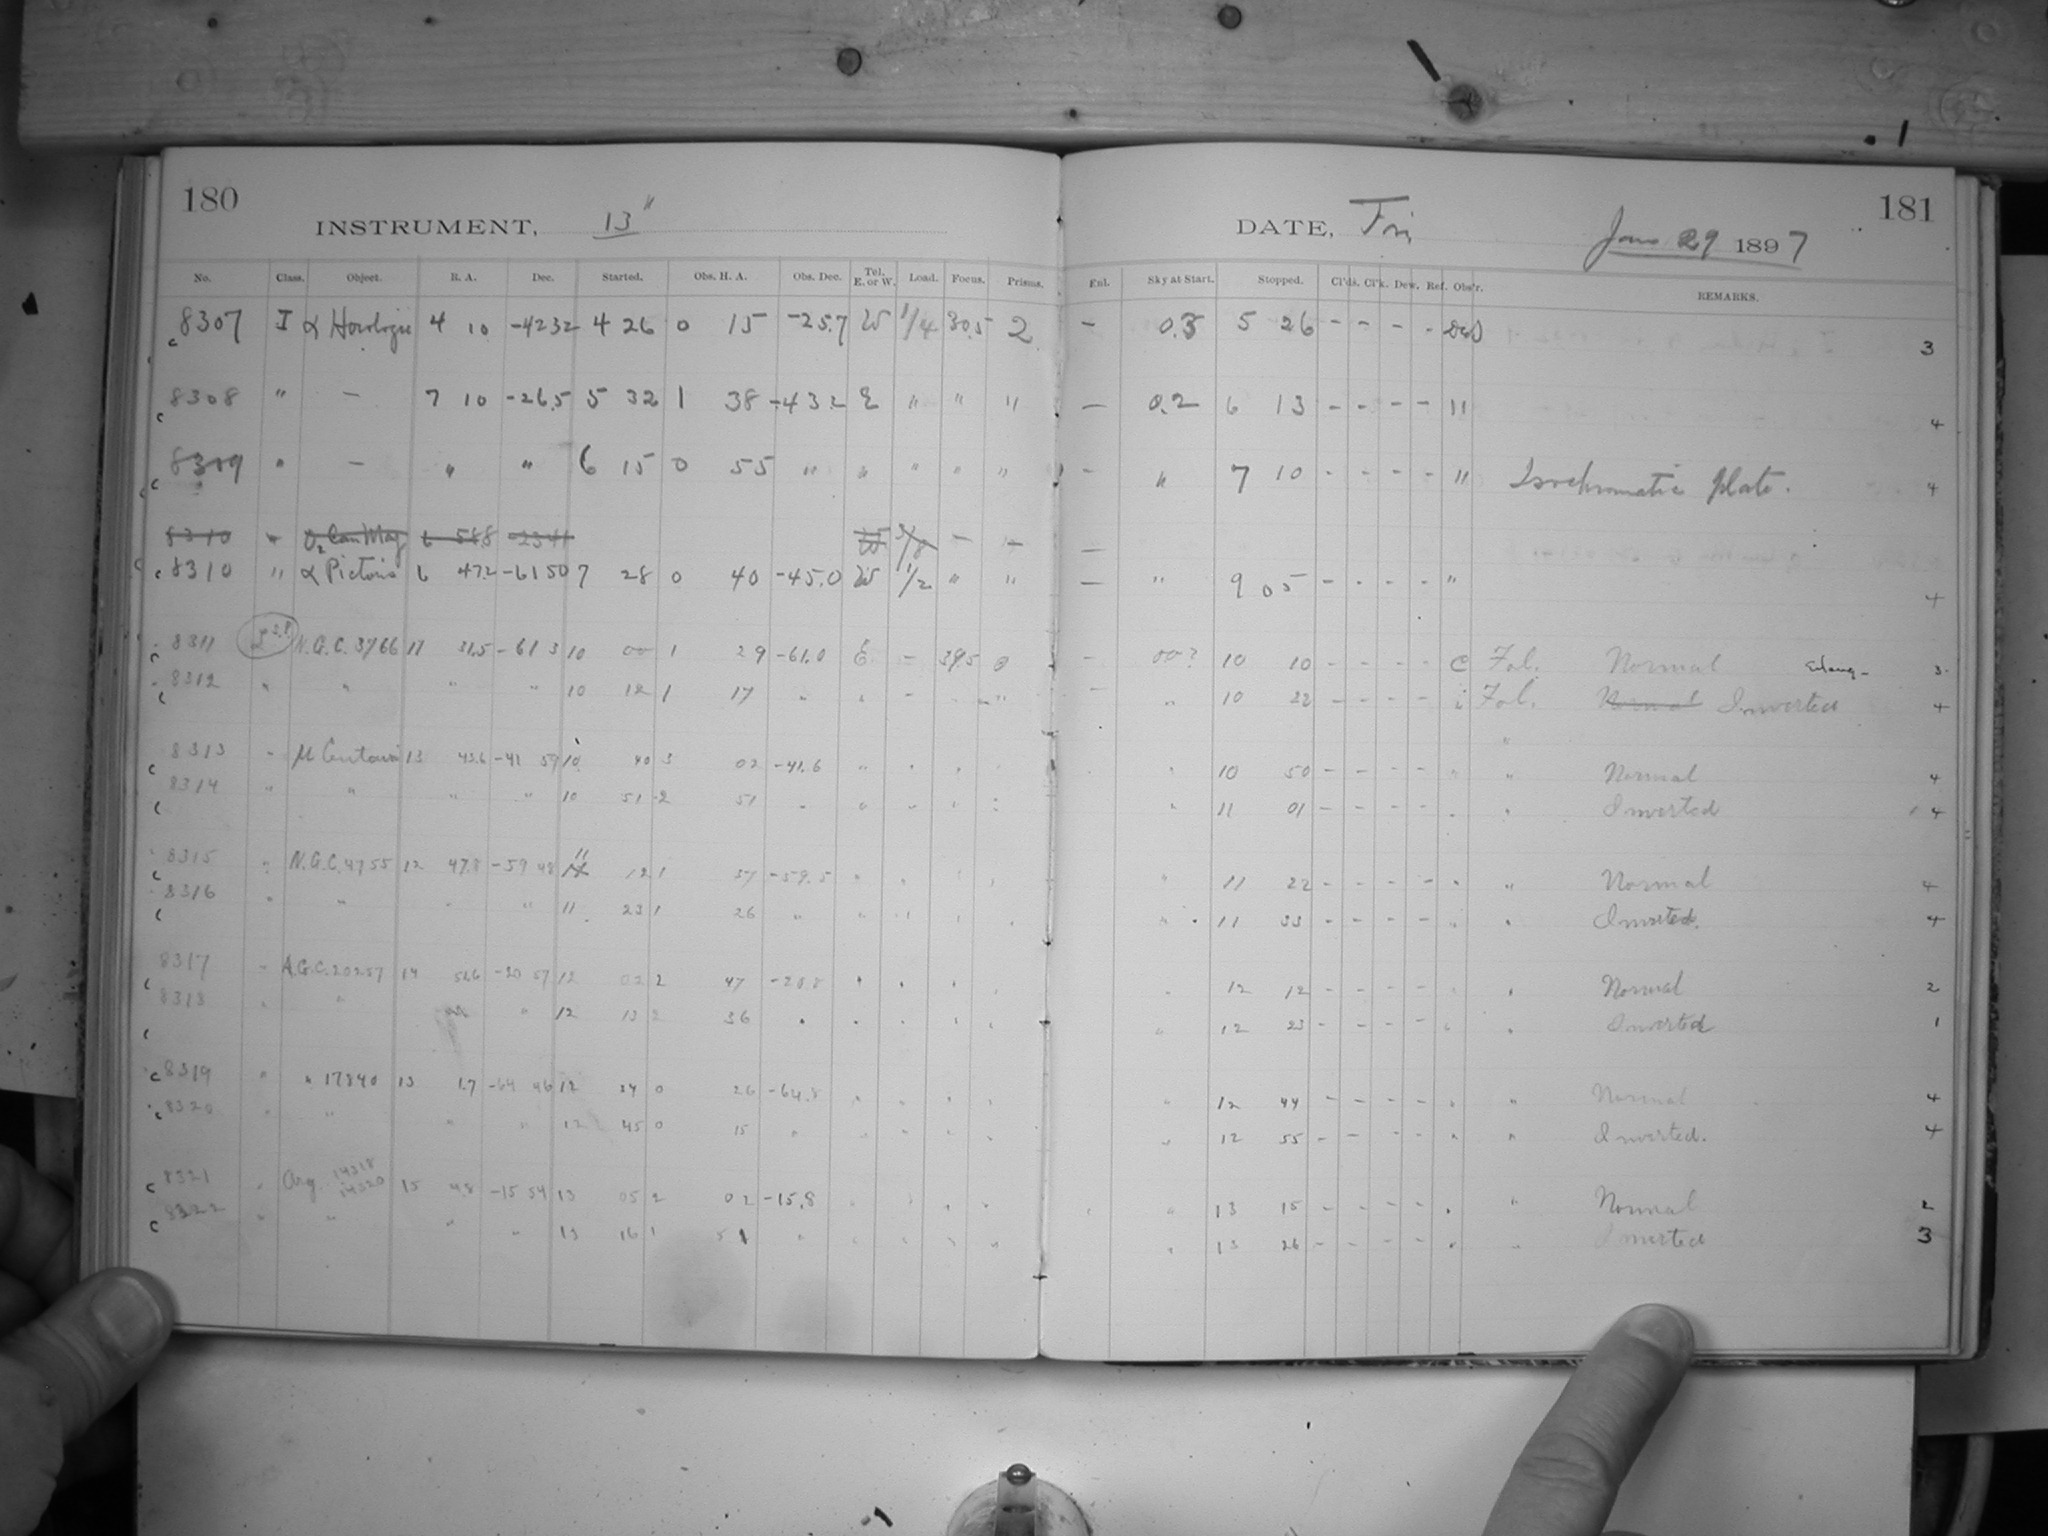 180
INSTRUMENT, 13"
No. Class. Object. R. A. Dec. Started. Obs. H. A. Obs. Dec. Tel. E. or W. Load. Focus. Prisms.
8307 I α Horologii 4 10 -42 32 4 26 0 15 -25.7 W 1/4 30.5 2
8308 " — 7 10 -26.5 5 32 1 38 -43.2 E " " "
8309 " — " " 6 15 0 55 " " " " "
8310 " α Pictoris 6 47.2 -61 50 7 28 0 40 -45.0 W 1/2 " "
8311 N.G.C. 3766 11 31.5 -61 3 10 00 1 29 -61.0 E - 39.5 0
8312 " " " " 10 12 1 17 " " - "
8313 " μ Centauri 13 43.6 -41 59 10 40 3 02 -41.6 "
8314 " " " " 10 51 2 51
8315 " N.G.C. 4755 12 47.8 -59 48 11 12 1 37 -59.5 "
8316 " " " " 11 23 1 26 " "
8317 " A.G.C. 20257 14 51.6 -20 57 12 02 2 47 -20.8
8318 " " " 12 13 2 36
8319 " " 17840 13 1.7 -64 46 12 34 0 26 -64.8
8320 " " " " 12 45 0 15 "
8321 " Arg. 14318 14320 15 4.8 -15 54 13 05 2 02 -15.8
8322 " " " " 13 16 1 51 "
181
DATE, Fri. Jan 29 1897
Enl. Sky at Start. Stopped. Cl'ds. Cl'k. Dew. Ref. Obs'r. REMARKS.
— 0.3 5 26 - - - - 3
— 0.2 6 13 - - - - " 4
- " 7 10 - - - - " Isochromatic plate. 4
— " 9 05 - - - - " 4
- 00? 10 10 - - - - C Fol. Normal Enlarg- 3
- " 10 22 - - - - Fol. Normal Inverted 4
" 10 50 - - - - " " Normal 4
" 11 01 - - - - " Inverted 4
" 11 22 - - - - " " Normal 4
" 11 33 - - - - " " Inverted. 4
12 12 - - - - " Normal 2
" 12 23 - - - - " " Inverted 1
" 12 44 - - - - " " Normal 4
" 12 55 - - - - " " Inverted. 4
" 13 15 - - - - " " Normal 2
" 13 26 - - - - " " Inverted 3